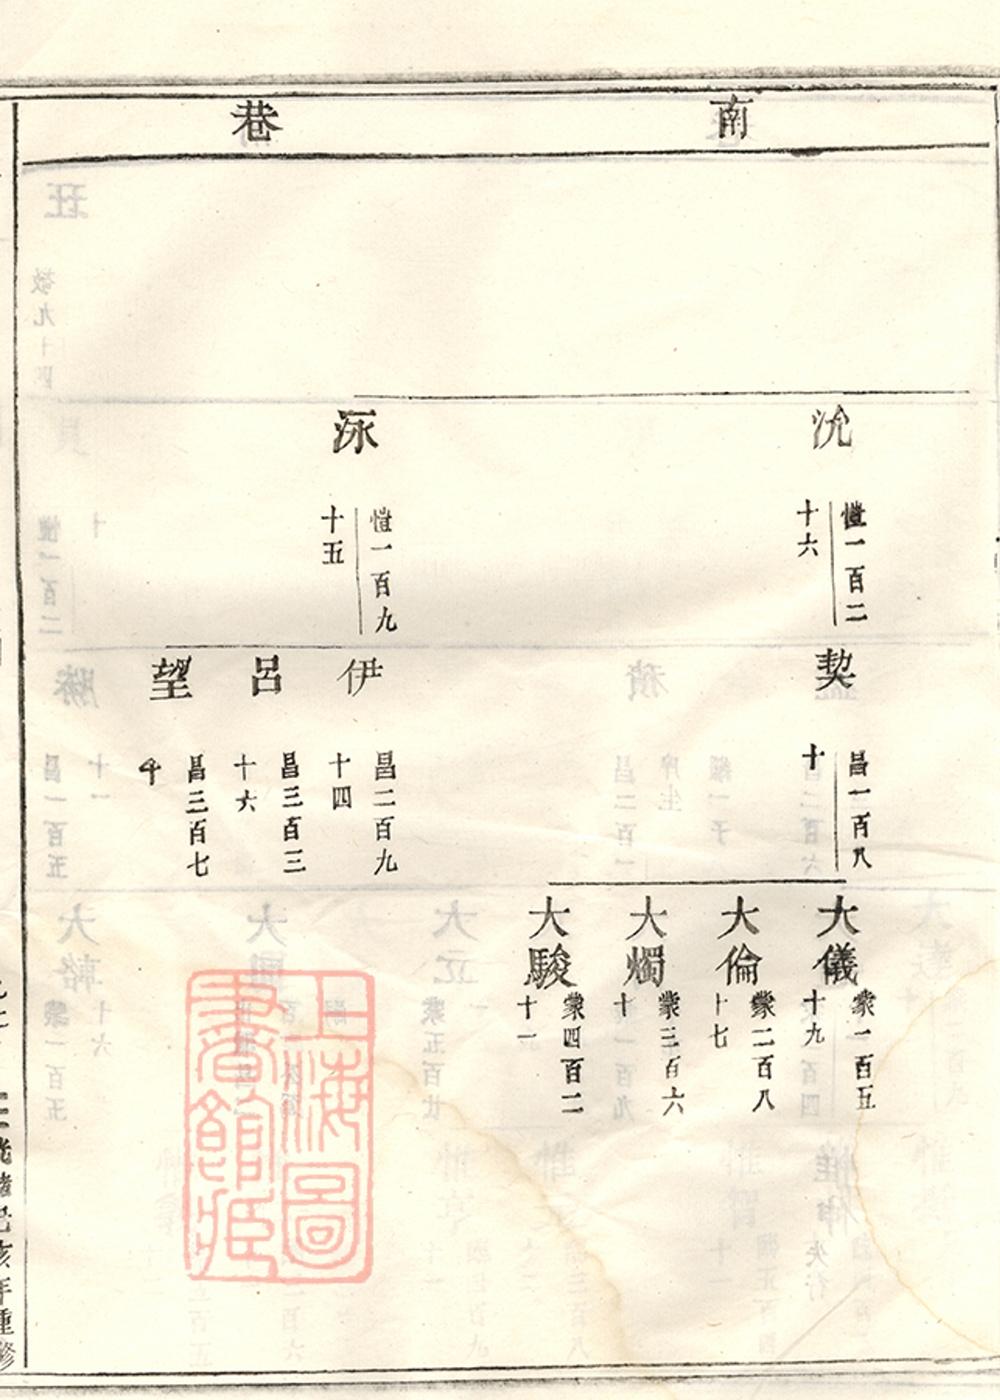 南巷
沇
愷一百二
十六
泳
愷一百九
十五
契
昌一百八
十
伊
昌二百九
十四
呂
昌三百三
十六
望
昌三百七
十
大儀
衆一百五
十九
大倫
衆二百八
十七
大燭
衆三百六
十
大駿
衆四百二
十一
上海圖
書館藏